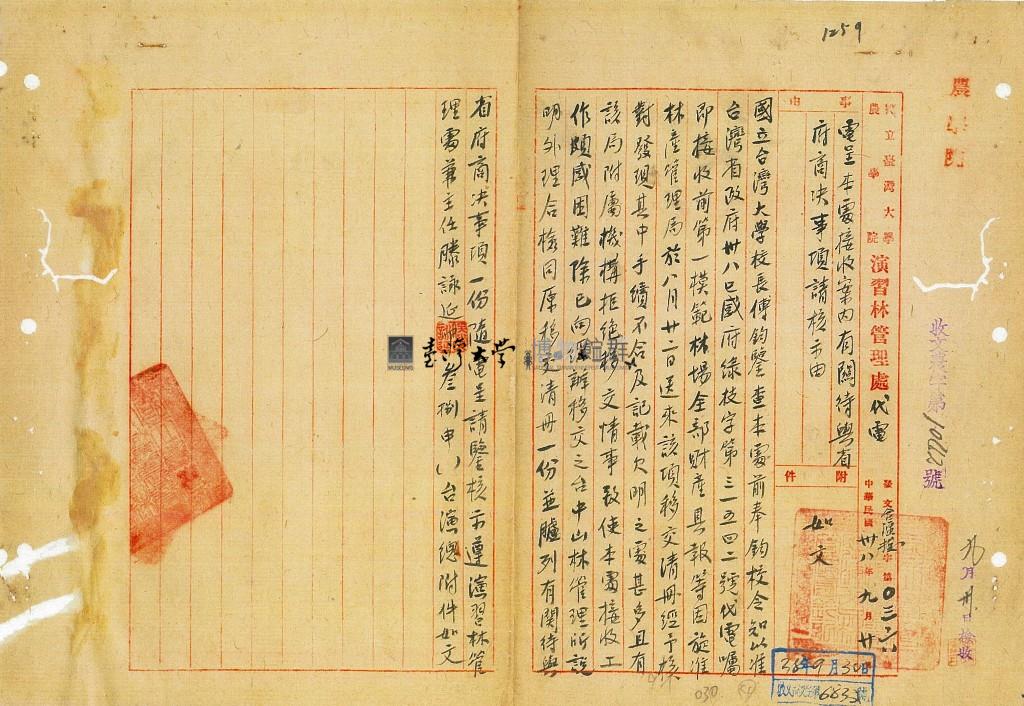 1259
農學院
收文農字第10212號
九月卅日檢收
國立臺灣大學
農學院
演習林管理處代電
發文
字第〇三六六號
中華民國卅八年九月廿
事由
電呈本處接收案內有關待與省
府商决事項請核示由
附件
如文
國立台灣大學校長傅鈞鑒查本處前奉鈞校令知以准
台灣省政府卅八巳感府綠技字第三一五四二號代電囑
即接收前第一模範林場全部財產具報等因旋准
林產管理局於八月廿二日送來該項移交清冊經予核
對發現其中手續不合及記載欠明之處甚多且有
該局附屬機構拒絕移交情事致使本處接收工
作頗感困難除已向經辦移交之台中山林管理所說
明外理合檢同原移交清冊一份並臚列有関待與
省府商决事項一份隨電呈請鑒核示遵演習林管
理處兼主任滕詠延叩叁捌申()台演總附件如文
38年9月30日
683
030
臺灣大學
博物館群
MUSEUMS